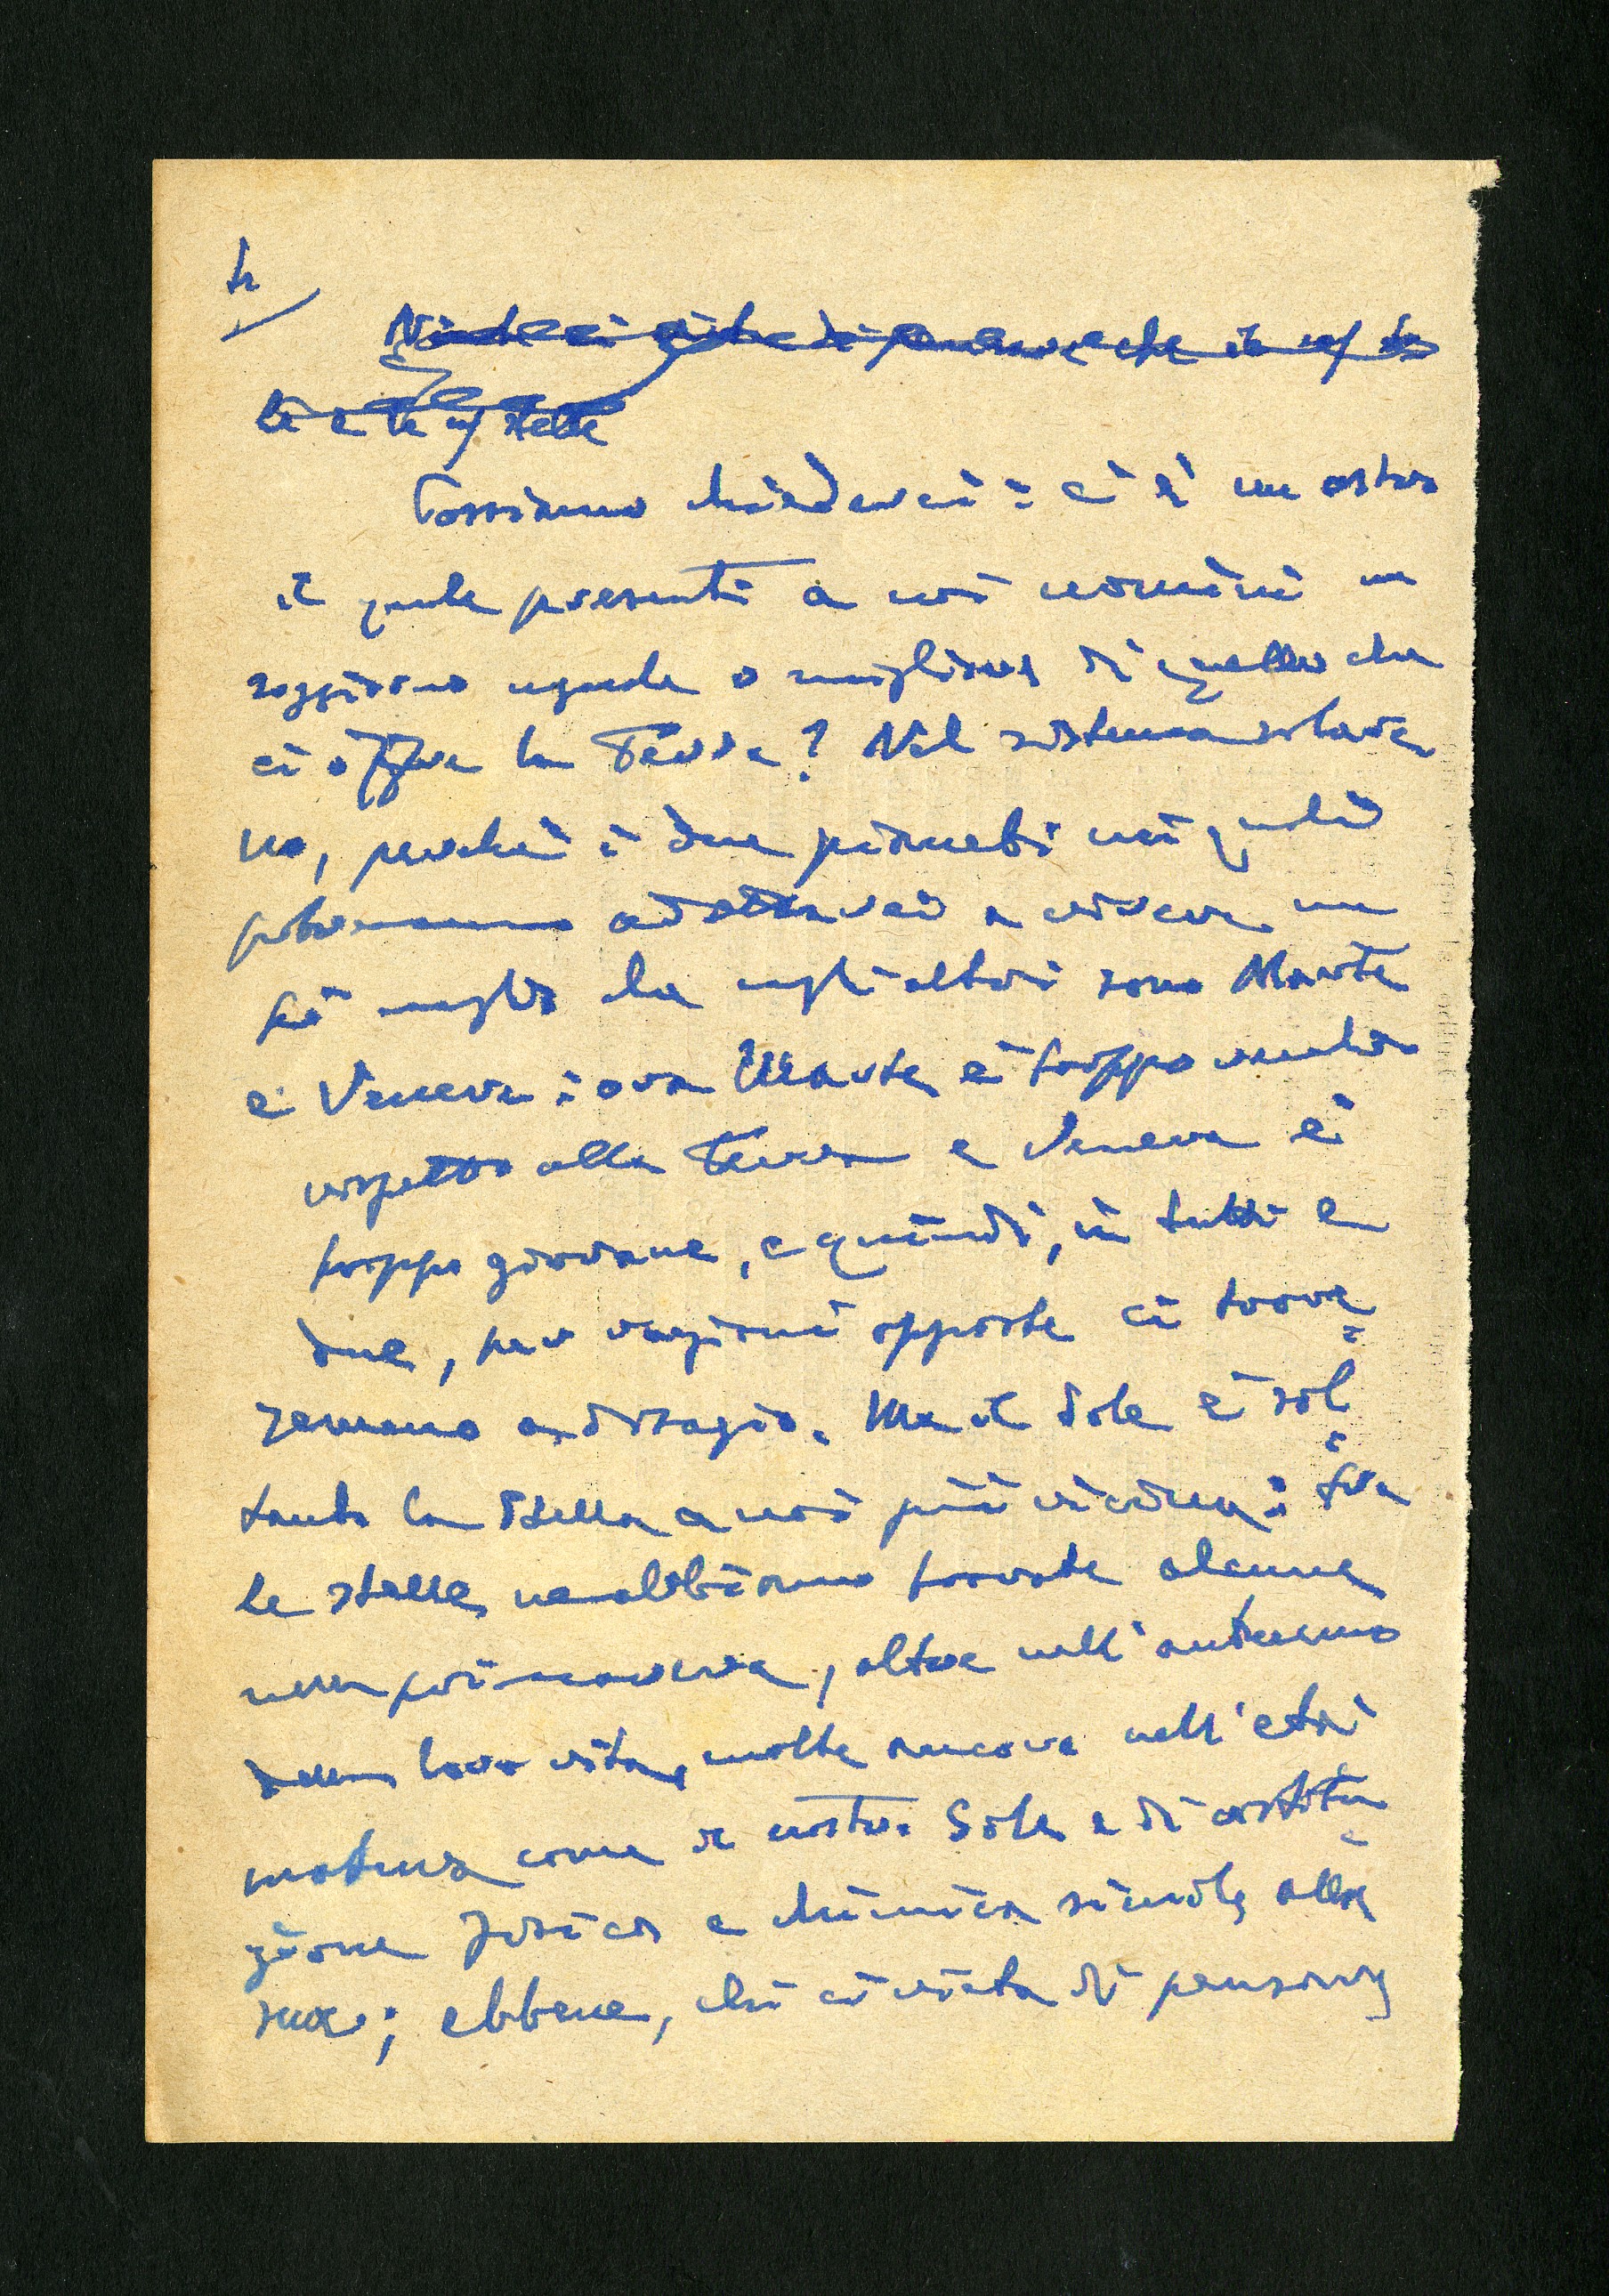 Possiamo chiederci: c'è un astro
il quale presenti a noi uomini un
soggiorno uguale o migliore di quello che
ci offre la Terra? Nel sistema solare
no, perché i due pianeti nei quali
potremmo adattarci a vivere un
pò meglio che negli altri sono Marte
e Venere: ora Marte è troppo vecchio
rispetto alla Terra e Venere è
troppo giovane, e quindi, in tutti e
due, per ragioni opposte ci trove=
remmo a disagio. Ma il Sole è sol=
tanto la stella a noi più vicina: fra
le stelle ne abbiamo trovate alcune
nella primavera, altre nell'autunno
della loro vita, molte ancora nell'età
matura come il nostro Sole e di costitu=
zione fisica e chimica simile alla
sua; ebbene, chi ci vieta di pensare